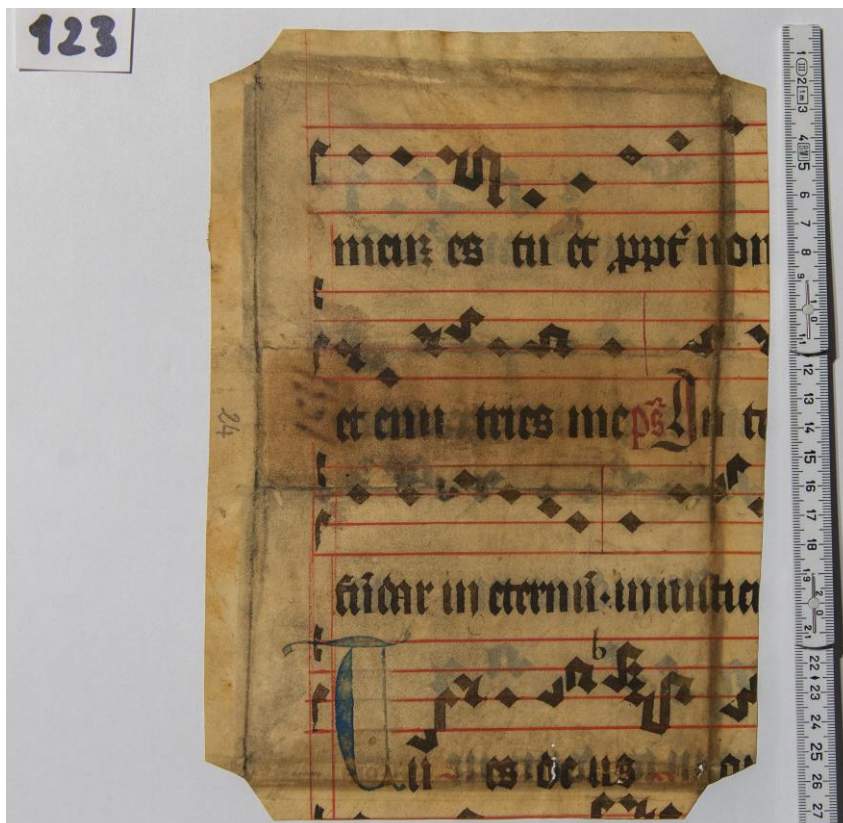 123
meuʒ es tu et ꝓpt̃ nom
et enu tries me pš In t
24
fũdar in eternũ · in iustici
b
Tu es deus